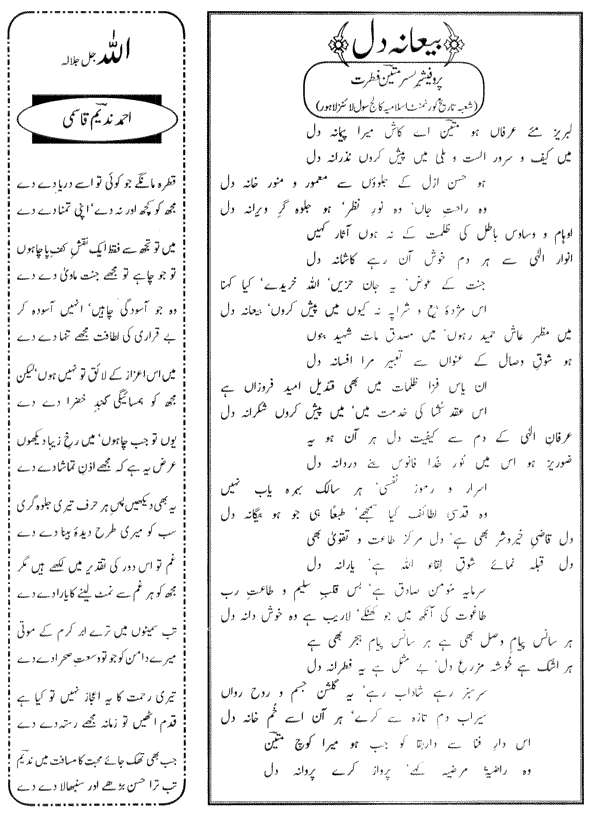 بیعانہ دل
پروفیسر بسر متین فطرت
(شعبہ تاریخ گورنمنٹ اسلامیہ کالج سول لائنز لاہور)
لبریز مئے عرفاں ہو متینؔ اے کاش میرا پیمانہ دل
میں کیف و سرور الست و بلی میں پیش کروں نذرانہ دل
ہو حسن ازل کے جلوؤں سے معمور و منور خانہ دل
وہ راحتِ جاں، وہ نورِ نظر، ہو جلوہ گرِ ویرانہ دل
اوہام و وساوس باطل کی ظلمت کے نہ ہوں آثار کہیں
انوار الٰہی سے ہر دم خوش آن رہے کاشانہ دل
جنت کے عوض، یہ جان حزیں، اللہ خریدے، کیا کہنا
اس مژدۂ بیع و شرا پہ نہ کیوں میں پیش کروں، بیعانہ دل
میں مظہر عاش حمید رہوں، میں مصدق مات شہید بنوں
ہو شوقِ وصال کے عنواں سے تعبیر مرا افسانہ دل
ان یاس فزا ظلمات میں بھی قندیل امید فروزاں ہے
اس عقدہ کشا کی خدمت میں، میں پیش کروں شکرانہ دل
عرفانِ الٰہی کے دم سے کیفیت دل ہر آن ہو یہ
ضوریز ہو اس میں نُور خُدا فانوس بنے دردانہ دل
اسرار و رموز نفسی، ہر سالک بہرہ یاب نہیں
وہ قدسی لطائف کیا سمجھے، طبعاً ہی جو ہو بیگانہ دل
دل قاضی خیروشر بھی ہے، دل مرکز طاعت و تقویٰ بھی
دل قبلہ نمائے شوقِ لقاء اللہ ہے، یارانہ دل
سرمایہ مؤمن صادق ہے، بس قلبِ سلیم و طاعتِ رب
طاغوت کی آنکھ میں جو کھٹکے، لاریب ہے وہ خوش دانہ دل
ہر سانس پیامِ وصل بھی ہے ہر سانس پیام ہجر بھی ہے
ہر اشک ہے خُوشہ مزرعِ دل، بے مثل ہے یہ فطرانہ دل
سرسبز رہے شاداب رہے، یہ گلشن جسم و روح رواں
سیراب دم تازہ سے کرے، ہر آن اسے خُم خانہ دل
اس دارِ فنا سے داربقا کو جب ہو میرا کوچ متینؔ
وہ راضیۃ مرضیہ کہے، پرواز کرے پروانہ دل
اللہ جل جلالہ
احمد ندیم قاسمی
قطرہ مانگے جو کوئی تو اسے دریا دے دے
مجھ کو کچھ اور نہ دے، اپنی تمنا دے دے
میں تو تجھ سے فقط ایک نقشِ کفِ پا چاہوں
تو جو چاہے تو مجھے جنت ماویٰ دے دے
وہ جو آسودگی چاہیں، انہیں آسودہ کر
بے قراری کی لطافت مجھے تنہا دے دے
میں اس اعزاز کے لائق تو نہیں ہوں، لیکن
مجھ کو ہمسائیگیِ گنبدِ خضرا دے دے
یوں تو جب چاہوں، میں رخِ زیبا دیکھوں
عرض یہ ہے کہ مجھے اذنِ تماشا دے دے
یہ بھی دیکھیں پسِ ہر حرف تیری جلوہ گری
سب کو میری طرح دیدۂ بینا دے دے
غم تو اس دور کی تقدیر میں لکھے ہیں مگر
مجھ کو ہر غم سے نمٹ لینے کا یارا دے دے
تب سمیٹوں میں ترے ابر کرم کے موتی
میرے دامن کو جو تو وسعتِ صحرا دے دے
تیری رحمت کا یہ اعجاز نہیں تو کیا ہے
قدم اٹھیں تو زمانہ مجھے رستہ دے دے
جب بھی تھک جائے محبت کا مسافت میں ندیمؔ
تب ترا حسن بڑھے اور سنبھالا دے دے